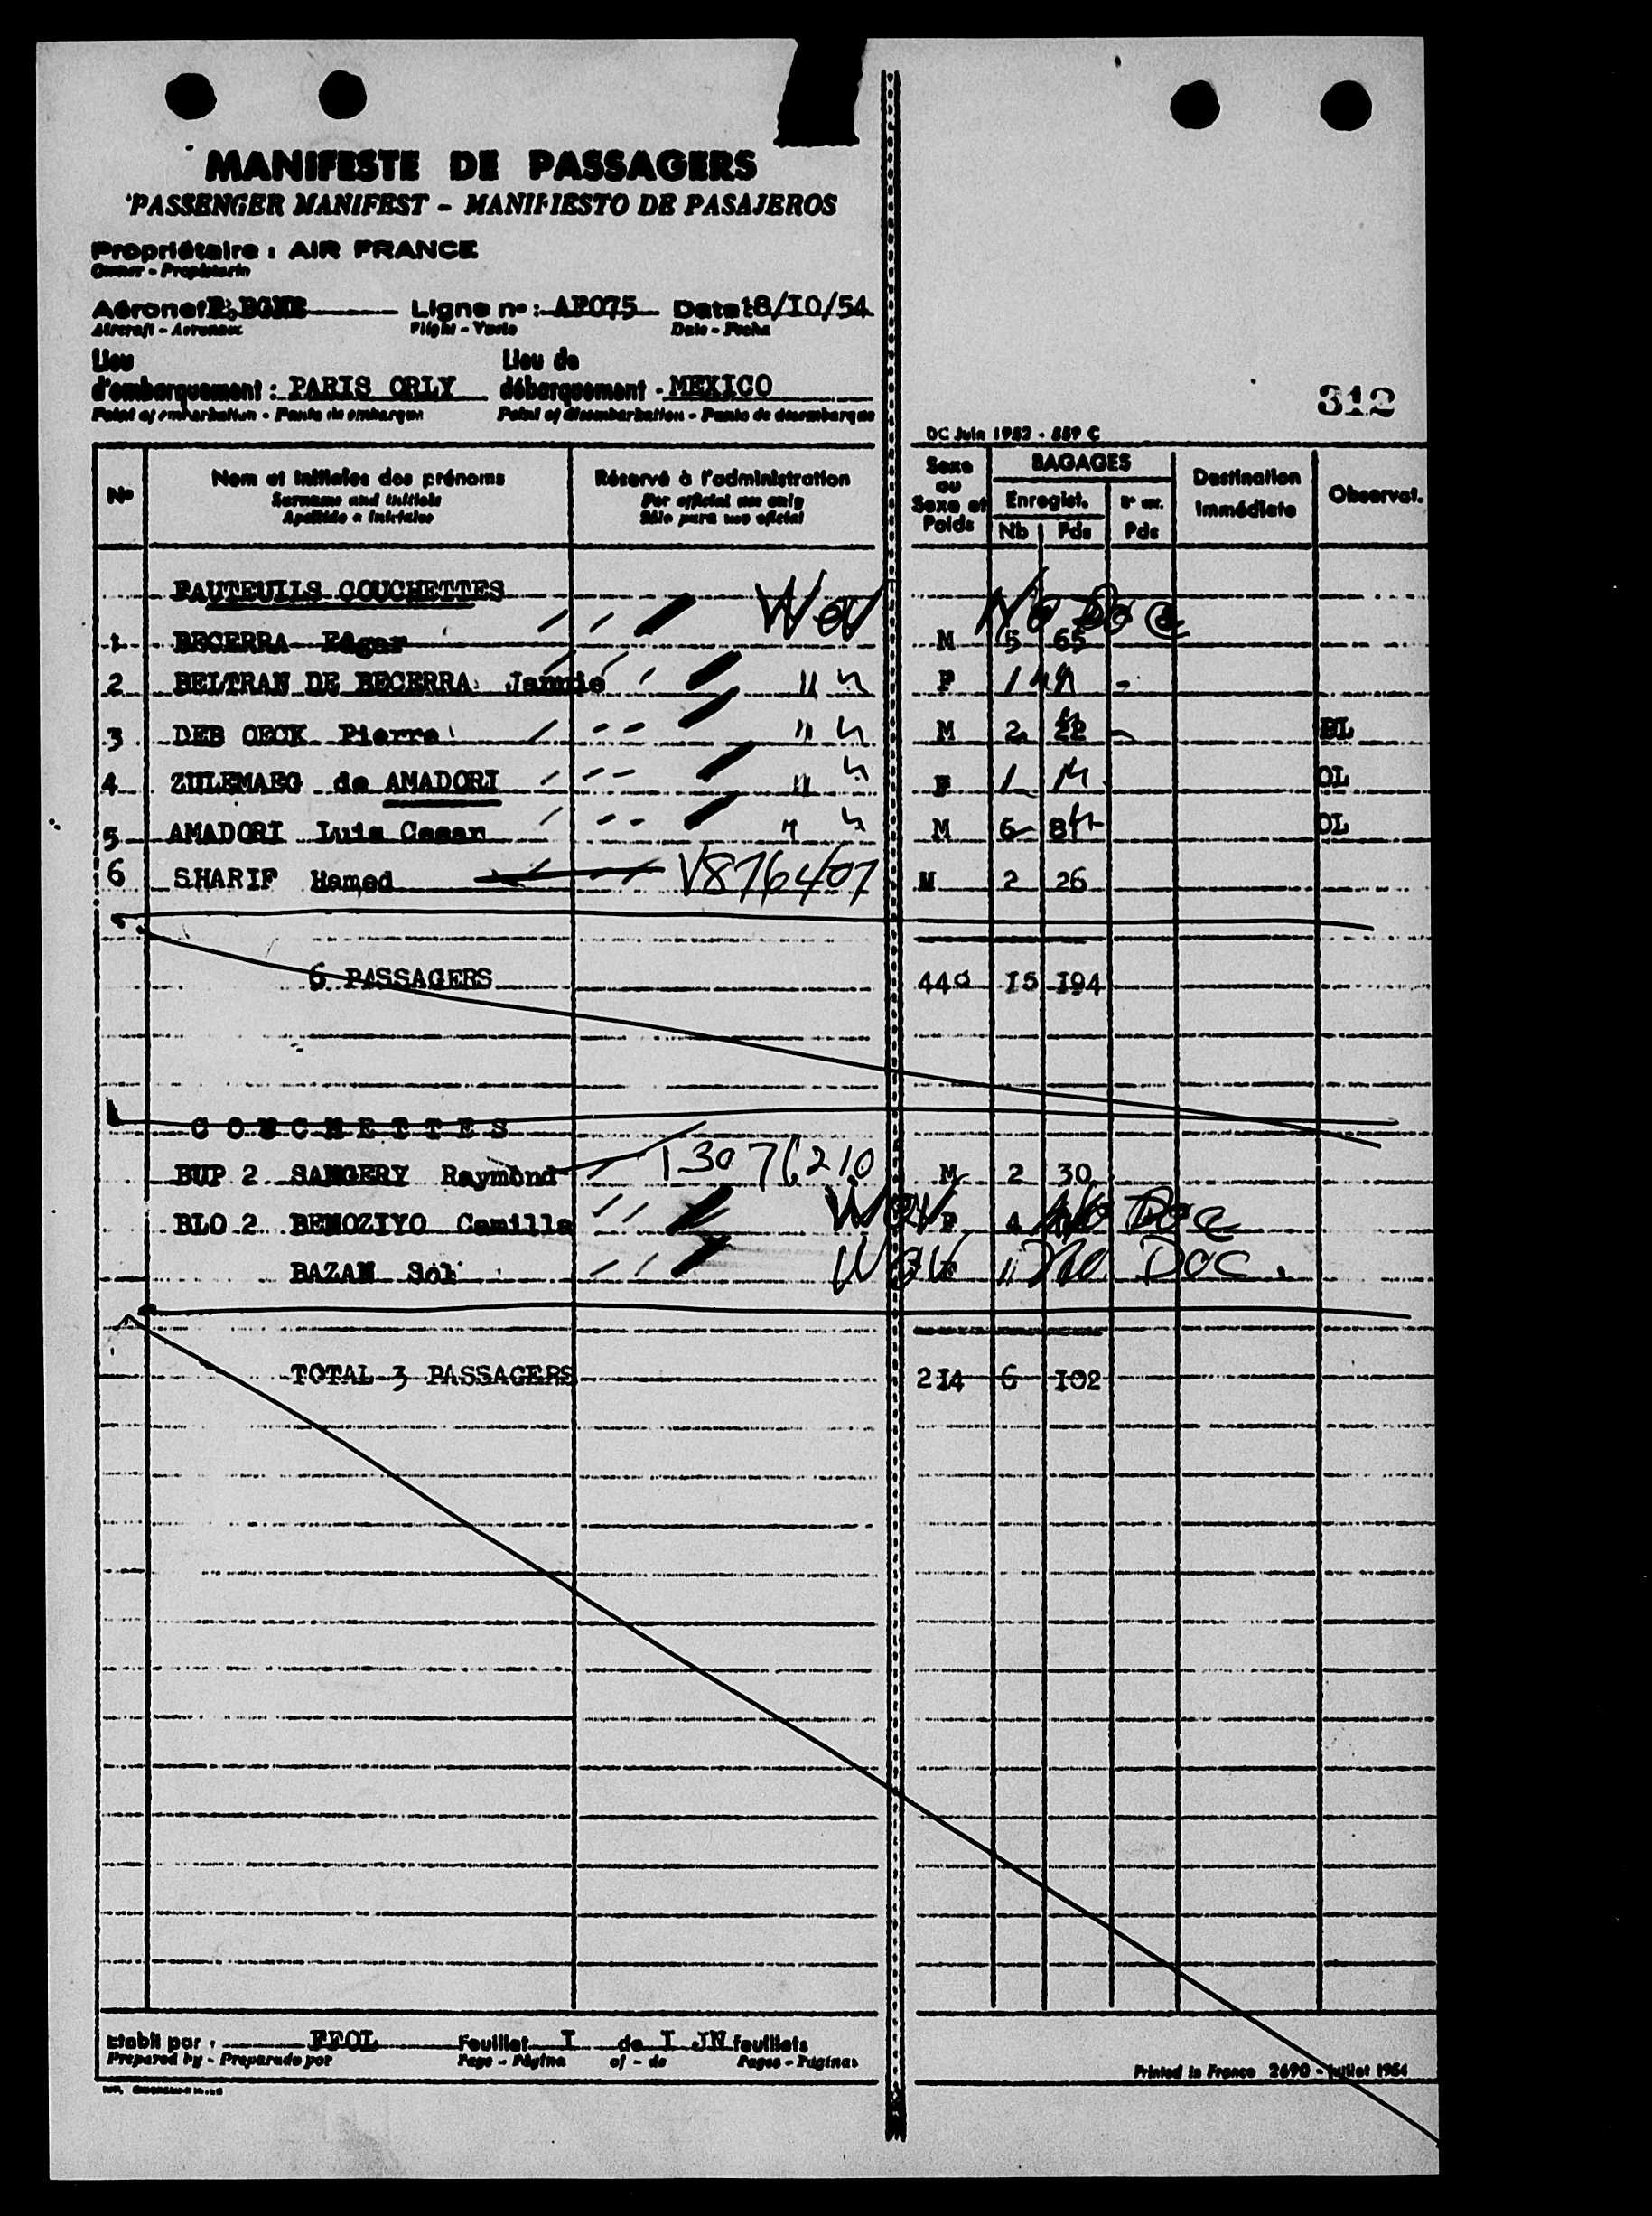 MANIFESTE DE PASSAGERS
PASSENGER MANIFEST - MANIFIESTO DE PASAJEROS
Propriétaire : AIR FRANCE
Owner - Propietario
Aéronef Ligne no : AF075 Date 18/10/54
Aircraft - Aeronave Flight - Vuelo Date - Fecha
Lieu Lieu de
d'embarquement : PARIS ORLY débarquement - MEXICO
Point of embarkation - Punto de embarque Point of disembarkation - Punto de desembarque
312
DC Juin 1952 - 559 C
No Nom et initiales des prénoms Réservé à l'administration Sexe ou Sexe et Poids BAGAGES Destination immédiate Observat.
Surname and initials For official use only Enregist.
Apellido e iniciales Sólo para uso oficial Nb Pds Pds
FAUTEUILS COUCHETTES
Wov No Doc
1 BECERRA Edgar M 5 65
2 BELTRAN DE BECERRA Jannie " F 1
3 DEB OECK Pierre " M 2 22
4 ZULEMAEG de AMADORI " F 1 OL
5 AMADORI Luis Cesar " M 6 OL
6 SHARIF Hamed V876407 M 2 26
6 PASSAGERS 440 15 194
COUCHETTES
BUP 2 SANGERY Raymond 13076210 M 2 30
BLO 2 BENOZIYO Camille Wov F 4 No Doc
BAZAN Sol Wov " No Doc.
TOTAL 3 PASSAGERS 214 6 102
Etabli par : FFOL Feuillet I de I JN feuillets
Prepared by - Preparado por Page - Página of - de Pages - Páginas
Printed in France 2690 - Juillet 1954